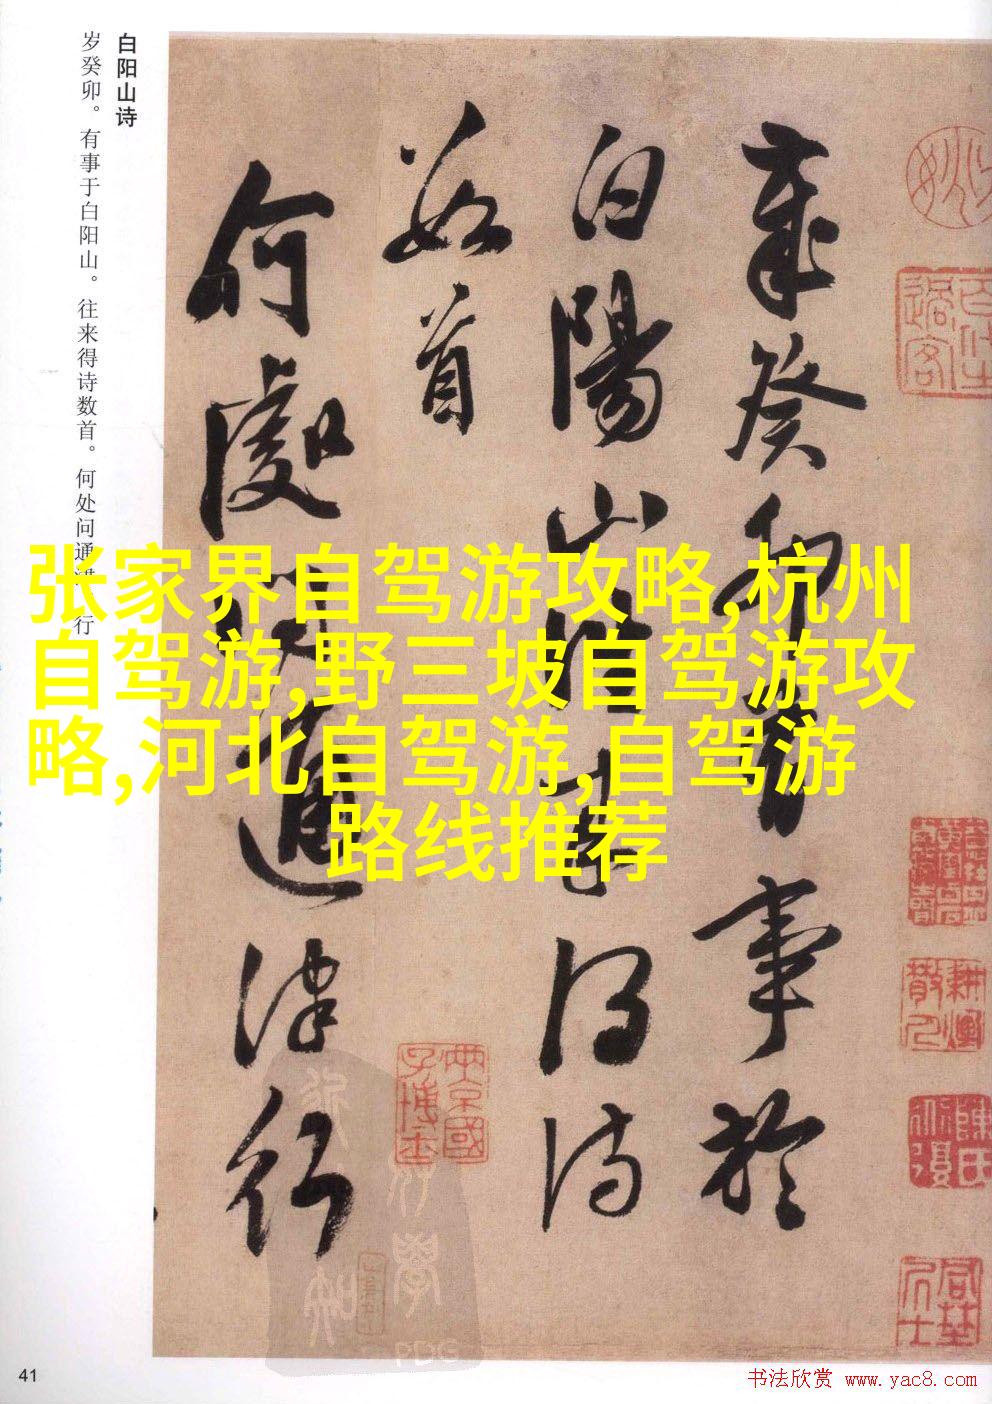 白阳山诗
岁癸卯。有事于白阳山。往来得诗数首。何处问通津。行
歲癸卯有事於
白陽山往来得诗
数首
何處问通津行
张家界自驾游攻略,杭州
自驾游,野三坡自驾游攻
略,河北自驾游,自驾游
路线推荐
陳氏
PDG
41
书法欣赏 www.yac8.com